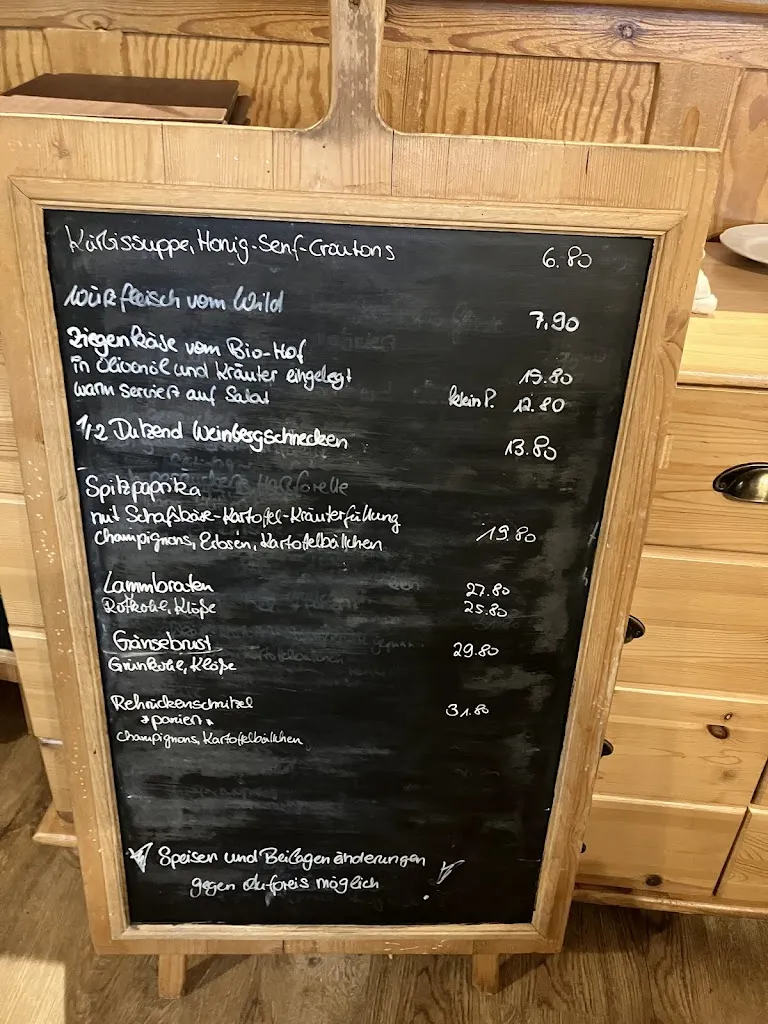 Kürbissuppe, Honig-Senf-Croutons 6.80
Würzfleisch vom Wild 7,90
Ziegenkäse vom Bio-Hof
in Olivenöl und Kräuter eingelegt 15.80
warm serviert auf Salat klein P. 12.80
1/2 Dutzend Weinbergschnecken 13.80
Spitzpaprika
mit Schafskäse-Kartoffel-Kräuterfüllung
Champignons, Erbsen, Kartoffelbällchen 19.80
Lammbraten 27.80
Rotkohl, Klöße 25.80
Gänsebrust 29.80
Grünkohl, Klöße
Rehrückenschnitzel 31.80
*paniert*
Champignons, Kartoffelbällchen
Speisen und Beilagenänderungen
gegen Aufpreis möglich